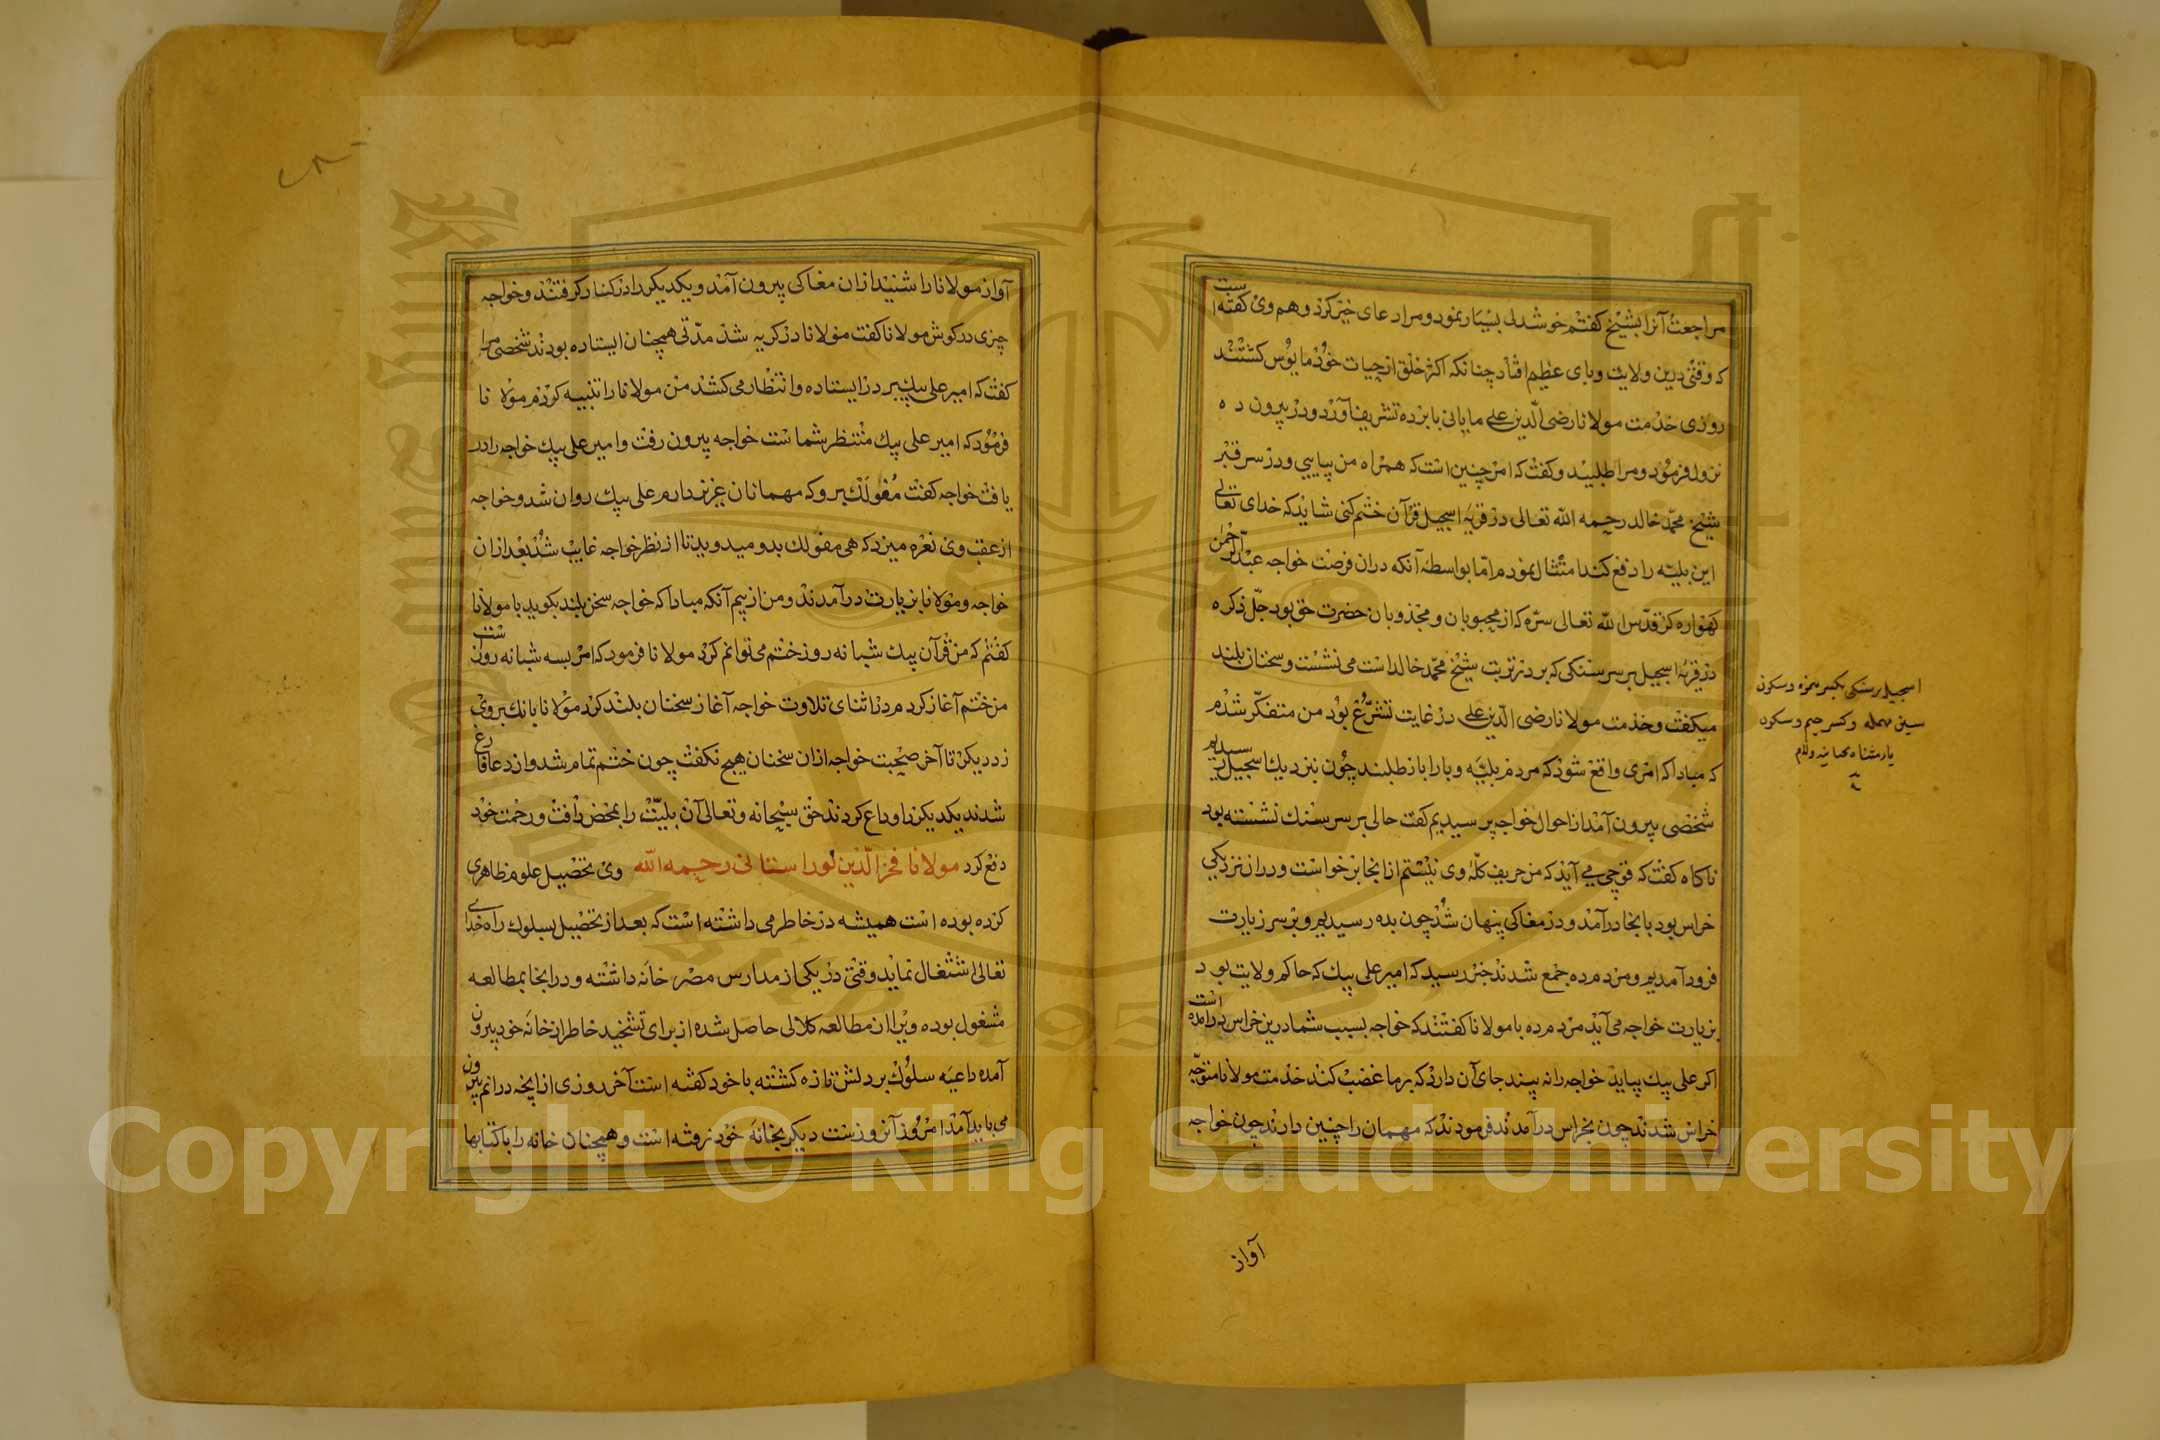 مراجعت آنرا بشیخ کفتم خوشدلی بسیار نمود و مرا دعای خیر کرد و هم وی کفته است
که وقتی درین ولایت وبای عظیم افتاد چنانکه اکثر خلق از حیات خود مایوس کشتند
روزی خدمت مولانا رضی الدین علی مایانی بابزده تشریف آورد و در بیرون ده
نزول فرمود و مرا طلبید و کفت که امر چنین است که همراه من بیایی و در سر قبر
شیخ محمد خالد رحیمه الله تعالی در قریه اسجیل قرآن ختم کنی شاید که خدای تعالی
این بلیه را دفع کند امتثال نمودم اما بواسطه آنکه دران فرصت خواجه عبد الرحمن
کهواره کر قدس الله تعالی سره که از محبوبان و مجذوبان حضرت حق بود جل ذکره
در قریه اسجیل بر سر سنکی که بر در تربت شیخ محمد خالد است می نشست و سخنان بلند
میکفت و خدمت مولانا رضی الدین علی در غایت تشرع بود من متفکر شدم
که مبادا که امری واقع شود که مردم بلیه و وبا را باز طلبند چون نزدیک اسجیل رسیدیم
شخصی بیرون آمد از احوال خواجه پرسیدیم کفت حالی بر سر سنک نشسته بود
ناکاه کفت که قوچی می آید که من حریف کله وی نیستم از انجا بر خواست و دران نزدیکی
خراس بود بانجا درآمد و در مغاکی پنهان شد چون بده رسیدیم و بر سر زیارت
فرود آمدیم و مردم ده جمع شدند خبر رسید که امیر علی بیک که حاکم ولایت بود
بزیارت خواجه می آید مردم ده با مولانا کفتند که خواجه بسبب شما درین خراس درامده است
اکر علی بیک بیاید خواجه را نه بیند جای آن دارد که بر ما غضب کند خدمت مولانا متوجه
خراس شدند چون بخراس درآمدند فرمودند که مهمان را چنین دارند چون خواجه
آواز
اسجیل بکسر همزه و سکون
سین مهمله و کسر جیم و سکون
یاء مثناه تحتانیه ولام
آواز مولانا را شنید ازان مغاکی بیرون آمد و یکدیکر را در کنار کرفتند و خواجه
چیزی در کوش مولانا کفت مولانا در کریه شد مدتی همچنان ایستاده بودند شخصی مرا
کفت که امیر علی بیک بر در ایستاده و انتظار می کشد من مولانا را تنبیه کردم مولانا
فرمود که امیر علی بیک منتظر شماست خواجه بیرون رفت و امیر علی بیک خواجه را در
یافت خواجه کفت مغولک برو که مهمانان عزیز دارم علی بیک روان شد و خواجه
از عقب وی نعره میزد که هی مغولک بدو میدوید تا از نظر خواجه غایب شد بعد ازان
خواجه و مولانا بزیارت درآمدند و من از بیم آنکه مبادا که خواجه سخن بلند بکوید با مولانا
کفتم که من قرآن بیک شبانه روز ختم می توانم کرد مولانا فرمود که امر بسه شبانه روز است
من ختم آغاز کردم در اثنای تلاوت خواجه آغاز سخنان بلند کرد مولانا بانک بر وی
زد دیکر تا آخر صحبت خواجه ازان سخنان هیچ نکفت چون ختم تمام شد و از دعا فارغ
شدند یکدیکر را وداع کردند حق سبحانه و تعالی آن بلیت را بمحض رافت و رحمت خود
دفع کرد مولانا فخر الدین لوراستانی رحیمه الله وی تحصیل علوم ظاهری
کرده بوده است همیشه در خاطر می داشته است که بعد از تحصیل بسلوک راه خدای
تعالی اشتغال نماید وقتی در یکی از مدارس مصر خانه داشته و درانجا بمطالعه
مشغول بوده ویرا ازان مطالعه کلالی حاصل شده از برای تشحیذ خاطر از خانه خود بیرون
آمده داعیه سلوک بر دلش تازه کشته با خود کفته است آخر روزی از انچه درانم بیرون
می باید آمد امروز آن روزست دیکر بخانه خود نرفته است و همچنان خانه را با کتابها
Copyright © King Saud University
1957